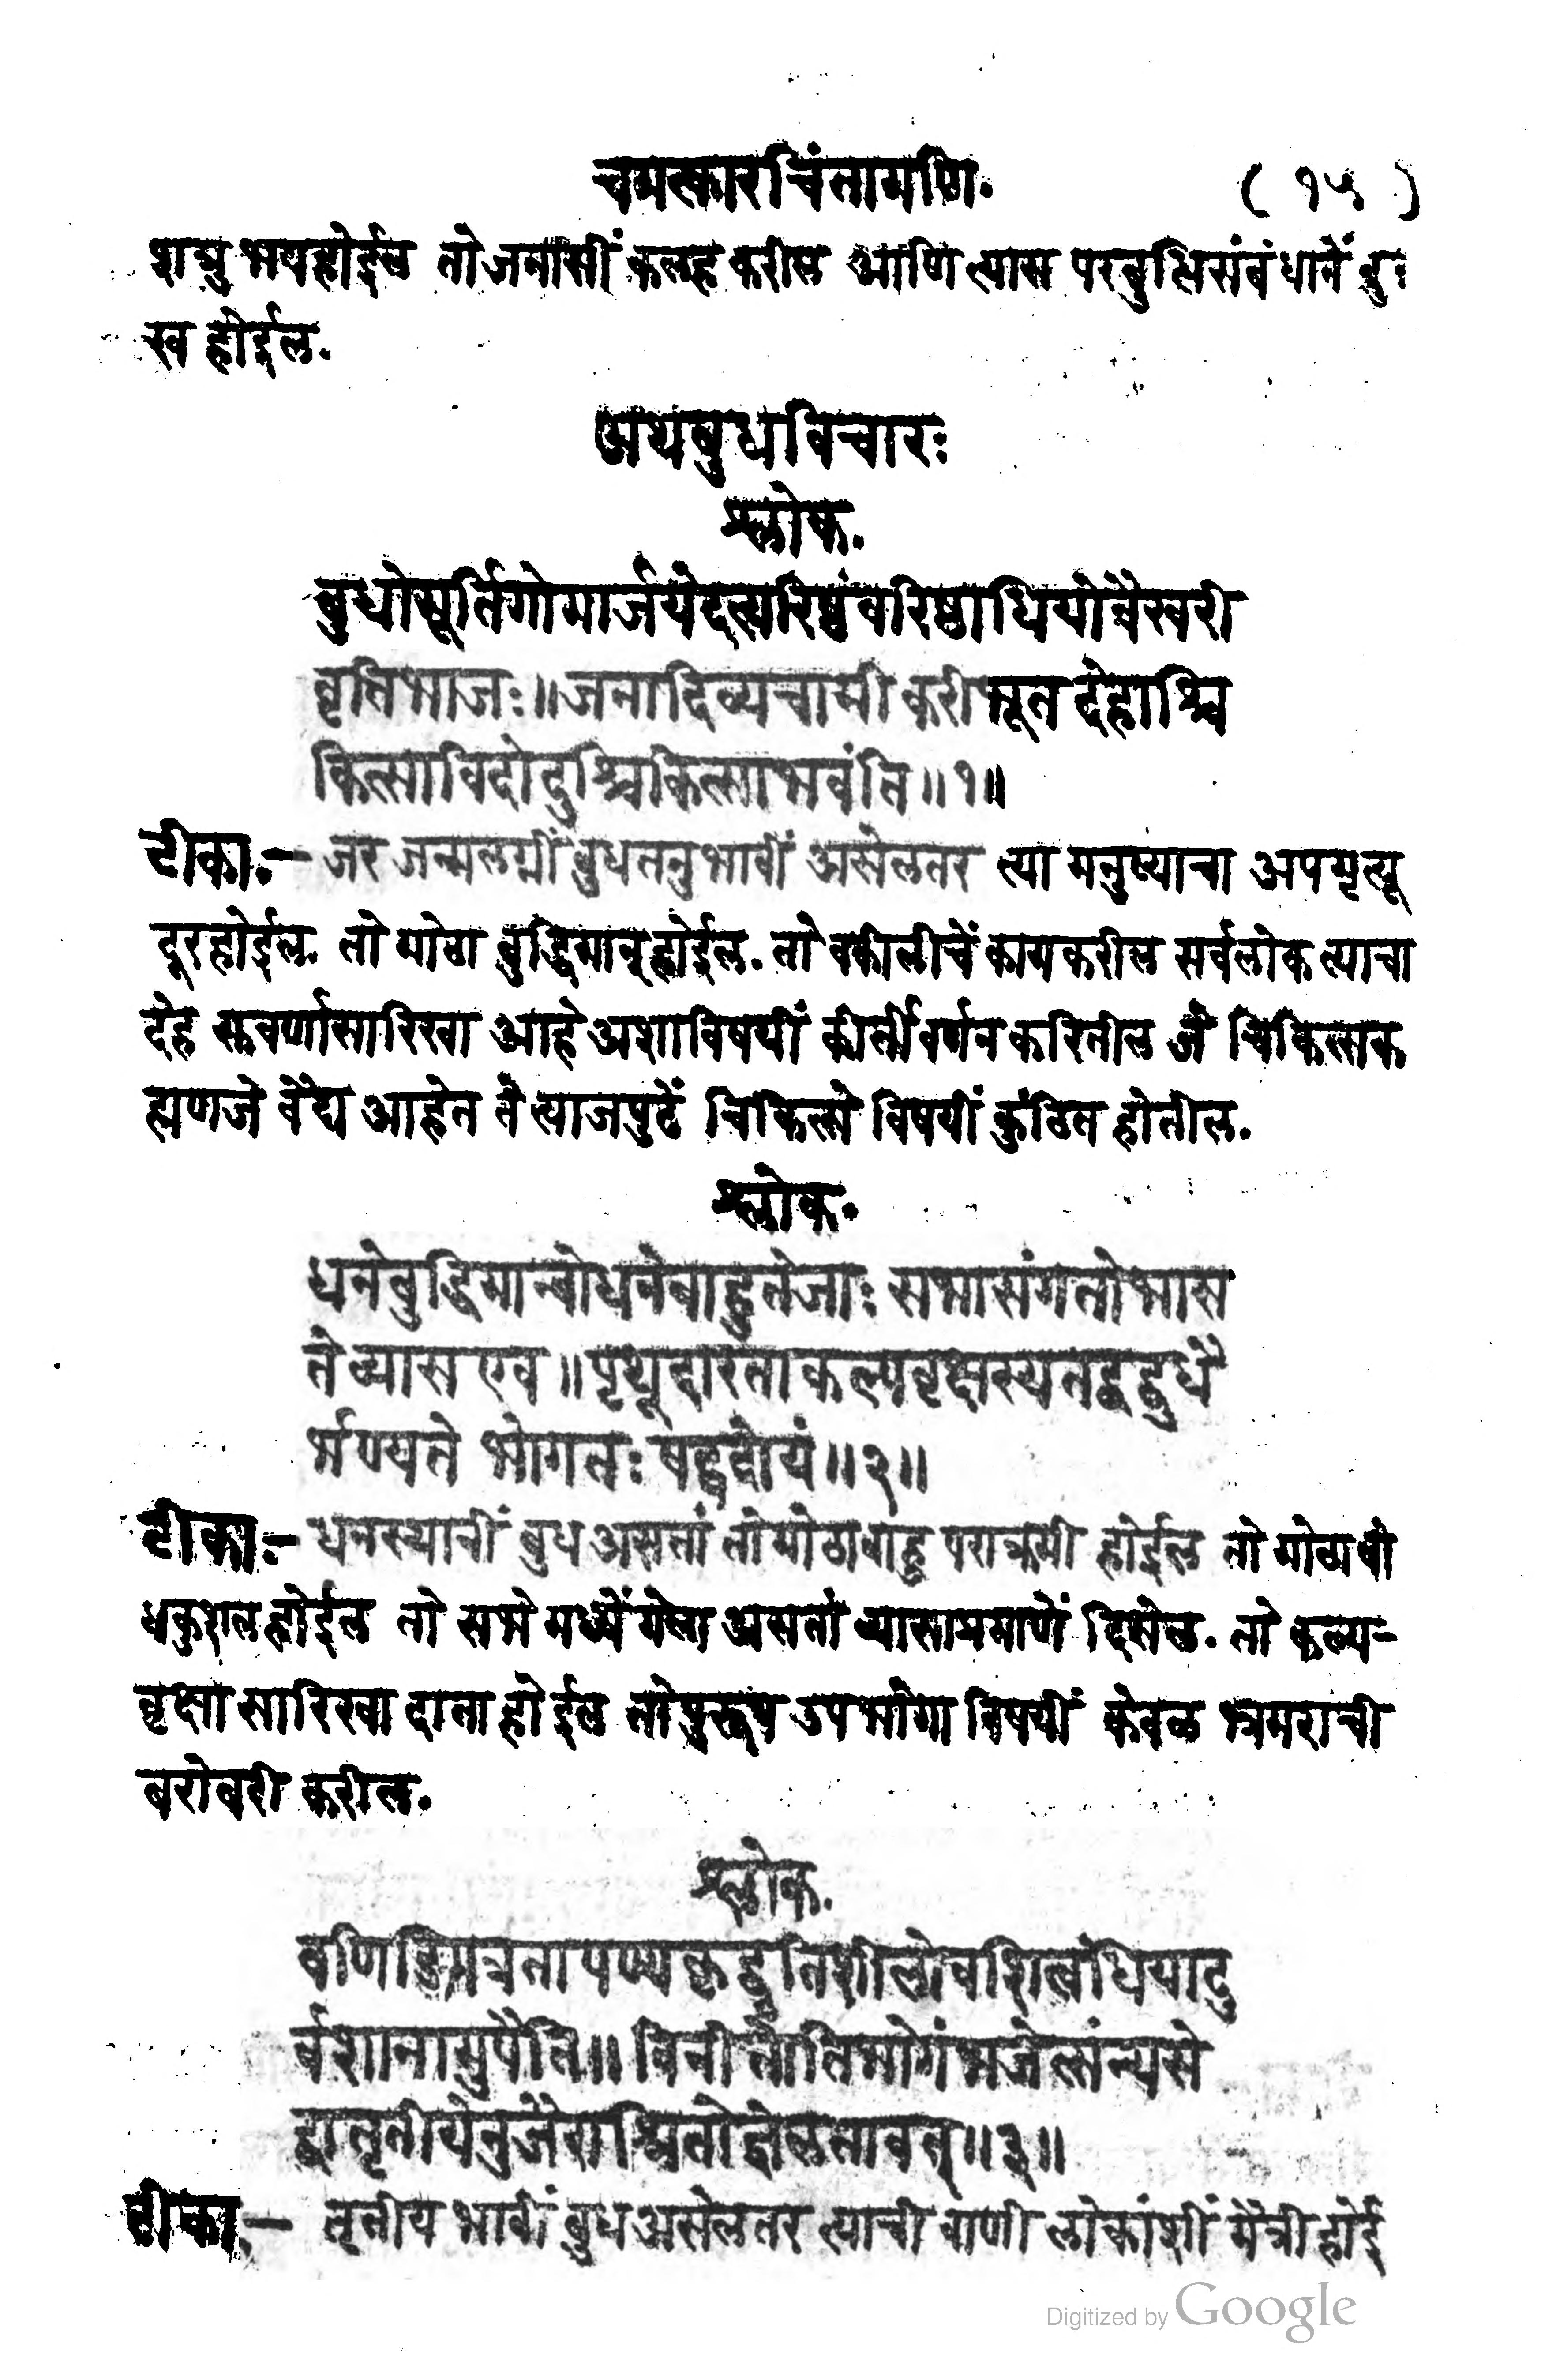 चमत्कारचिंतामणि. ( १५ )
शत्रु भयहोईल तोजनासीं कलह करील आणि त्यास परबुत्धिसंबंधानें दुः
ख होईल.
अथबुधविचारः
श्लोक.
बुधोमूर्तिगोमार्जयेदत्यरिष्टंवरिष्ठाधियोवैखरी
वृत्तिभाजः॥जनादिव्यचामीकरीभूतदेहाश्चि
कित्साविदोदुश्चिकित्साभवंति॥१॥
टीका.— जर जन्मलग्नीं बुधतनुभावीं असेलतर त्या मनुष्याचा अपमृत्यू
दूरहोईल. तो मोठा बुद्धिमान्होईल. तो वकीलीचें कामकरील सर्वलोक त्याचा
देह स्रवर्णासारिखा आहे अशाविषयीं कीर्तीवर्णन करितील जे चिकित्सक
ह्मणजे वैद्य आहेत ते त्याजपुढें चिकित्से विषयीं कुंठित होतील.
श्लोक.
धनेबुद्धिमान्बोधनेबाहुतेजाः सभासंगतोभास
तेव्यास एव॥पृथूदारताकल्पवृक्षस्यतद्वद्बुधै
र्भण्यते भोगतः षट्पदोयं॥२॥
टीका:— धनस्थानीं बुध असतां तोमोठाबाहु पराक्रमी होईल तो मोठा बो
धकुशलहोईल तो सभे मध्यें गेला असतां व्यासाप्रमाणें दिसेल. तो कल्प-
वृक्षा सारिखा दाता होईल तोपुरूष उपभोगा विषयीं केवळ भ्रमराची
बरोबरी करील.
श्लोक.
वणिङ्मित्रतापण्यकृद्वृत्तिशीलोवशित्वंधियादु
र्वशानामुपैति॥विनीतोतिभोगंभजेत्संन्यसे
द्वातृतीयेनुजैराश्रितोज्ञेलतावत्॥३॥
टीका.— तृतीय भावीं बुधअसेलतर त्याची वाणी लोकांशीं मैत्री होई
Digitized by Google